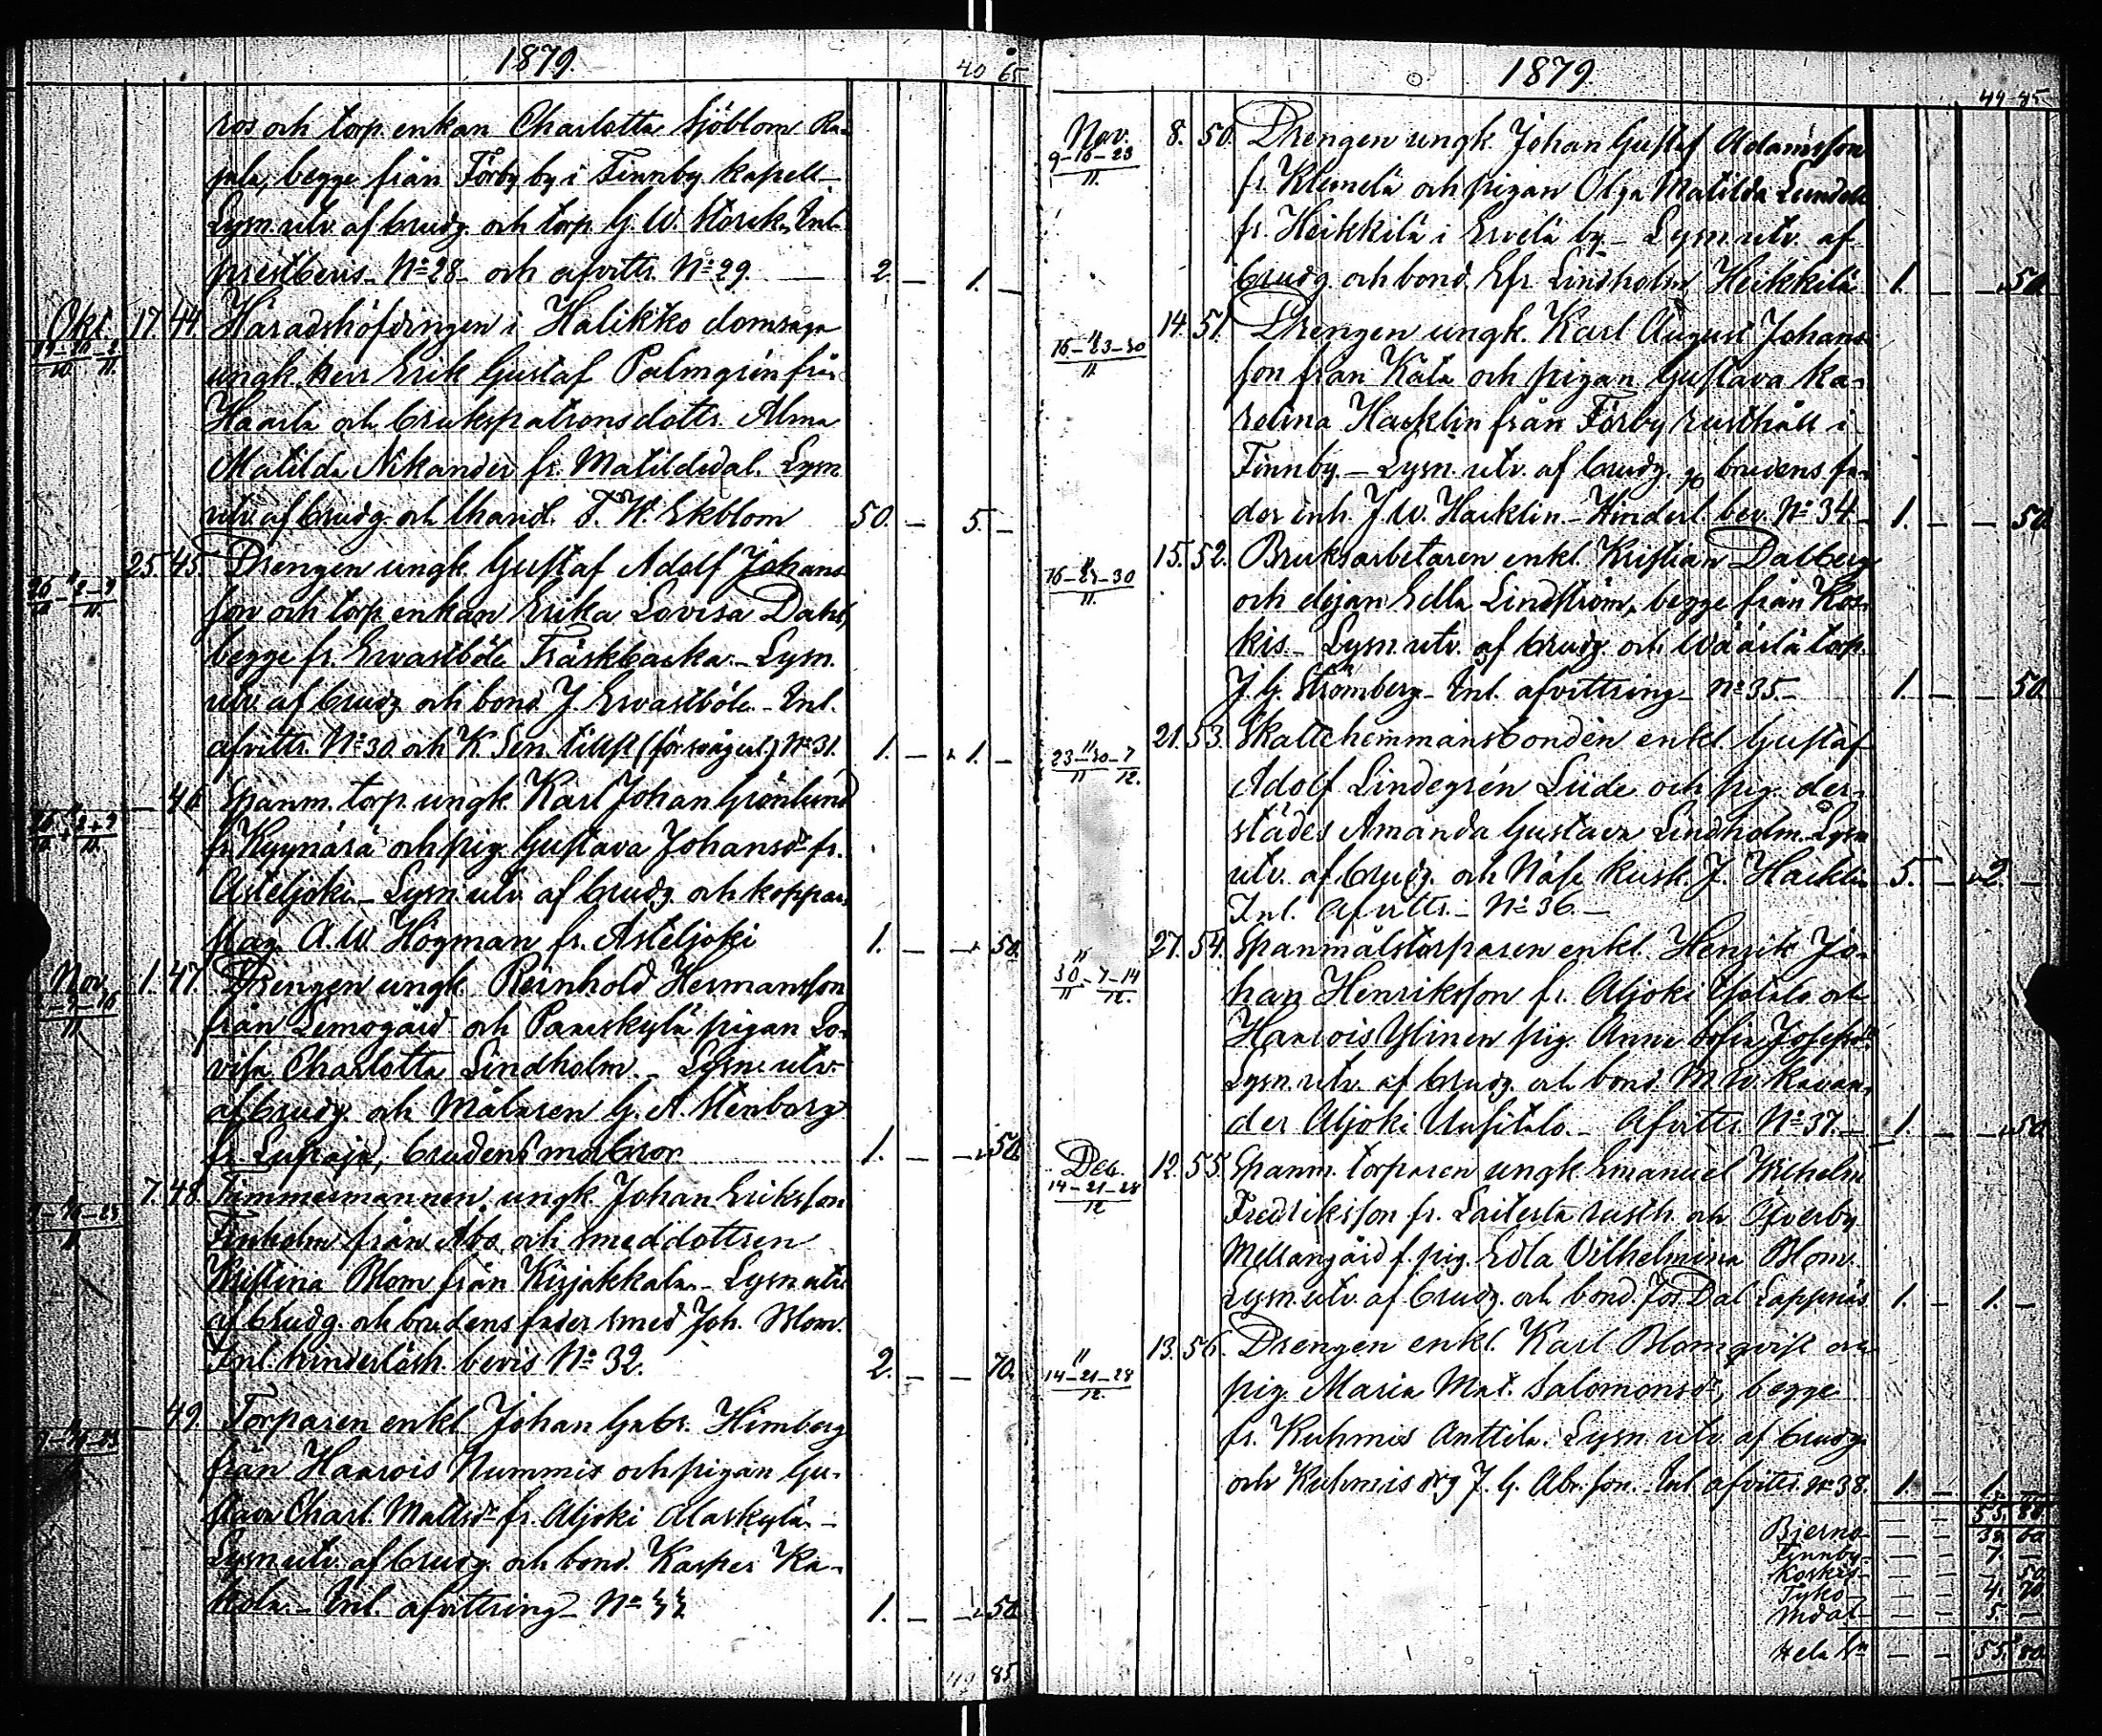 1879.
40 65
ros och torp. enkan Charlotta Sjöblom Ra-
jala, begge från Förby by i Finnby kapell.-
Lysn. utv. af brudg. och torp. G. W. Storck. Inl.
prestbevis No 28 och afvittr. No 29. 2. — 1. —
Okt. 17. 44. Häradshöfdingen i Halikko domsaga
19-26-2
10. 11.
ungk. herr Erik Gustaf Palmgrén från
Haarla och brukspatronsdottr. Alma
Matilda Nikander fr. Matildedal. Lysn.
utv. af brudg. och Ekblom 50. — 5. —
25. 45. Drengen ungk. Gustaf Adolf Johans-
26-2-9
10. 11.
son och torp. enkan Erika Lovisa Dahl,
begge fr. Ervastböle Träskbacka.- Lysn.
utv. af brudg. och bond. J. Ervastböle.- Inl.
afvittr. No 30. och K. Sen. tillst. (för svågerl.) No 31. 1. — 1. —
— 46. Spanm. torp. ungk. Karl Johan Grönlund
fr. Kyynärä och pig. Gustava Johansdr fr.
Asteljoki.- Lysn. utv. af brudg. och koppar-
slag. A. W. Högman fr. Asteljoki 1. — — 50.
Nov. 1. 47. Drengen ungk. Reinhold Hermansson
2-9-16
11.
från Lemogård och Pareskylä pigan Lo-
visa Charlotta Lindholm.- Lysn. utv.
af brudg. och Målaren G. A. Stenborg
fr. Lupaja, brudens morbror 1. — — 50.
7. 48. Timmermannen ungk. Johan Eriksson
9-16-23
11.
Finholm från Åbo och smeddottren
Kristina Blom från Kirjakkala.- Lysn. utv.
af brudg. och brudens fader smed Joh. Blom.
Inl. hinderlösh. bevis No 32. 2. — — 70.
— 49. Torparen enkl. Johan Gabr. Himberg
9-16-23
från Haarois Nummis och pigan Gu-
stava Charl. Mattsdr fr. Aljoki Alaskylä.-
Lysn. utv. af brudg. och bond. Kasper Ka-
kola.- Inl. afvittring No 33 1. — — 50.
49 85
1879.
49 85
Nov. 8. 50. Drengen ungk. Johan Gustaf Adamsson
9-16-23
11.
fr. Klemelä och pigan Olga Matilda Lundell
fr. Heikkilä i Ervelä by.- Lysn. utv. af
brudg. och bond. Efr. Lindholm Heikkilä 1. — — 50.
14. 51. Drengen ungk. Karl August Johans-
16-23-30
11.
son från Kata och pigan Gustava Ka-
rolina Hacklin från Förby rusthåll i
Finnby.- Lysn. utv. af brudg. o brudens fa-
der inh. J. W. Hacklin.- Hinderl. bev. No 34. 1. — — 50.
15. 52. Bruksarbetaren enkl. Kristian Dalberg
16-23-30
11.
och dejan Edla Lindström, begge från Kos-
kis.- Lysn. utv. af brudg. och torp.
J. G. Strömberg.- Inl. afvittring No 35.- 1. — — 50.
21. 53. Skattehemmansbonden enkl. Gustaf
23-30-7
11 12.
Adolf Lindegrén Liide och pig. der-
städes Amanda Gustava Lindholm.- Lysn.
utv. af brudg. och Näse kusk. J. Hacklin 5. — 2. —
Inl. Afvittr.- No 36.-
27. 54. Spanmålstorparen enkl. Henrik Jo-
30-7-14
11 12.
han Henriksson fr. Aljoki Ylitalo och
Haarois Ylinen pig. Anna Sofia Josephsdr.
Lysn. utv. af brudg. och bond. M. W. Kavan-
der Aljoki Uusitalo.- Afvittr. No 37.- 1. — — 50.
Dec. 12. 55. Spanm. torparen ungk. Emanuel Wilhelm
14-21-28
12
Fredriksson fr. rusth. och Öfverby
Mellangård f. pig. Edla Vilhelmina Blom.
Lysn. utv. af brudg. och bond. Jos. Dal Lappnäs 1. — 1. —
13. 56. Drengen enkl. Karl Blomqvist och
14-21-28
12.
pig. Maria Mat. Salomonsdr, begge
fr. Kuhmis Anttila. Lysn. utv. af brudg.
och Kuhmis drg J. G. Abr.son.- Inl. afvittr. No 38. 1. — 1. —
55. 80.
Bjerno — — 38. 60
Finnby — — 7. —
Koskis — — — 50.
Tykö — — 4. 70
Mdal — — 5. —
Hela Sn — — 55. 80.